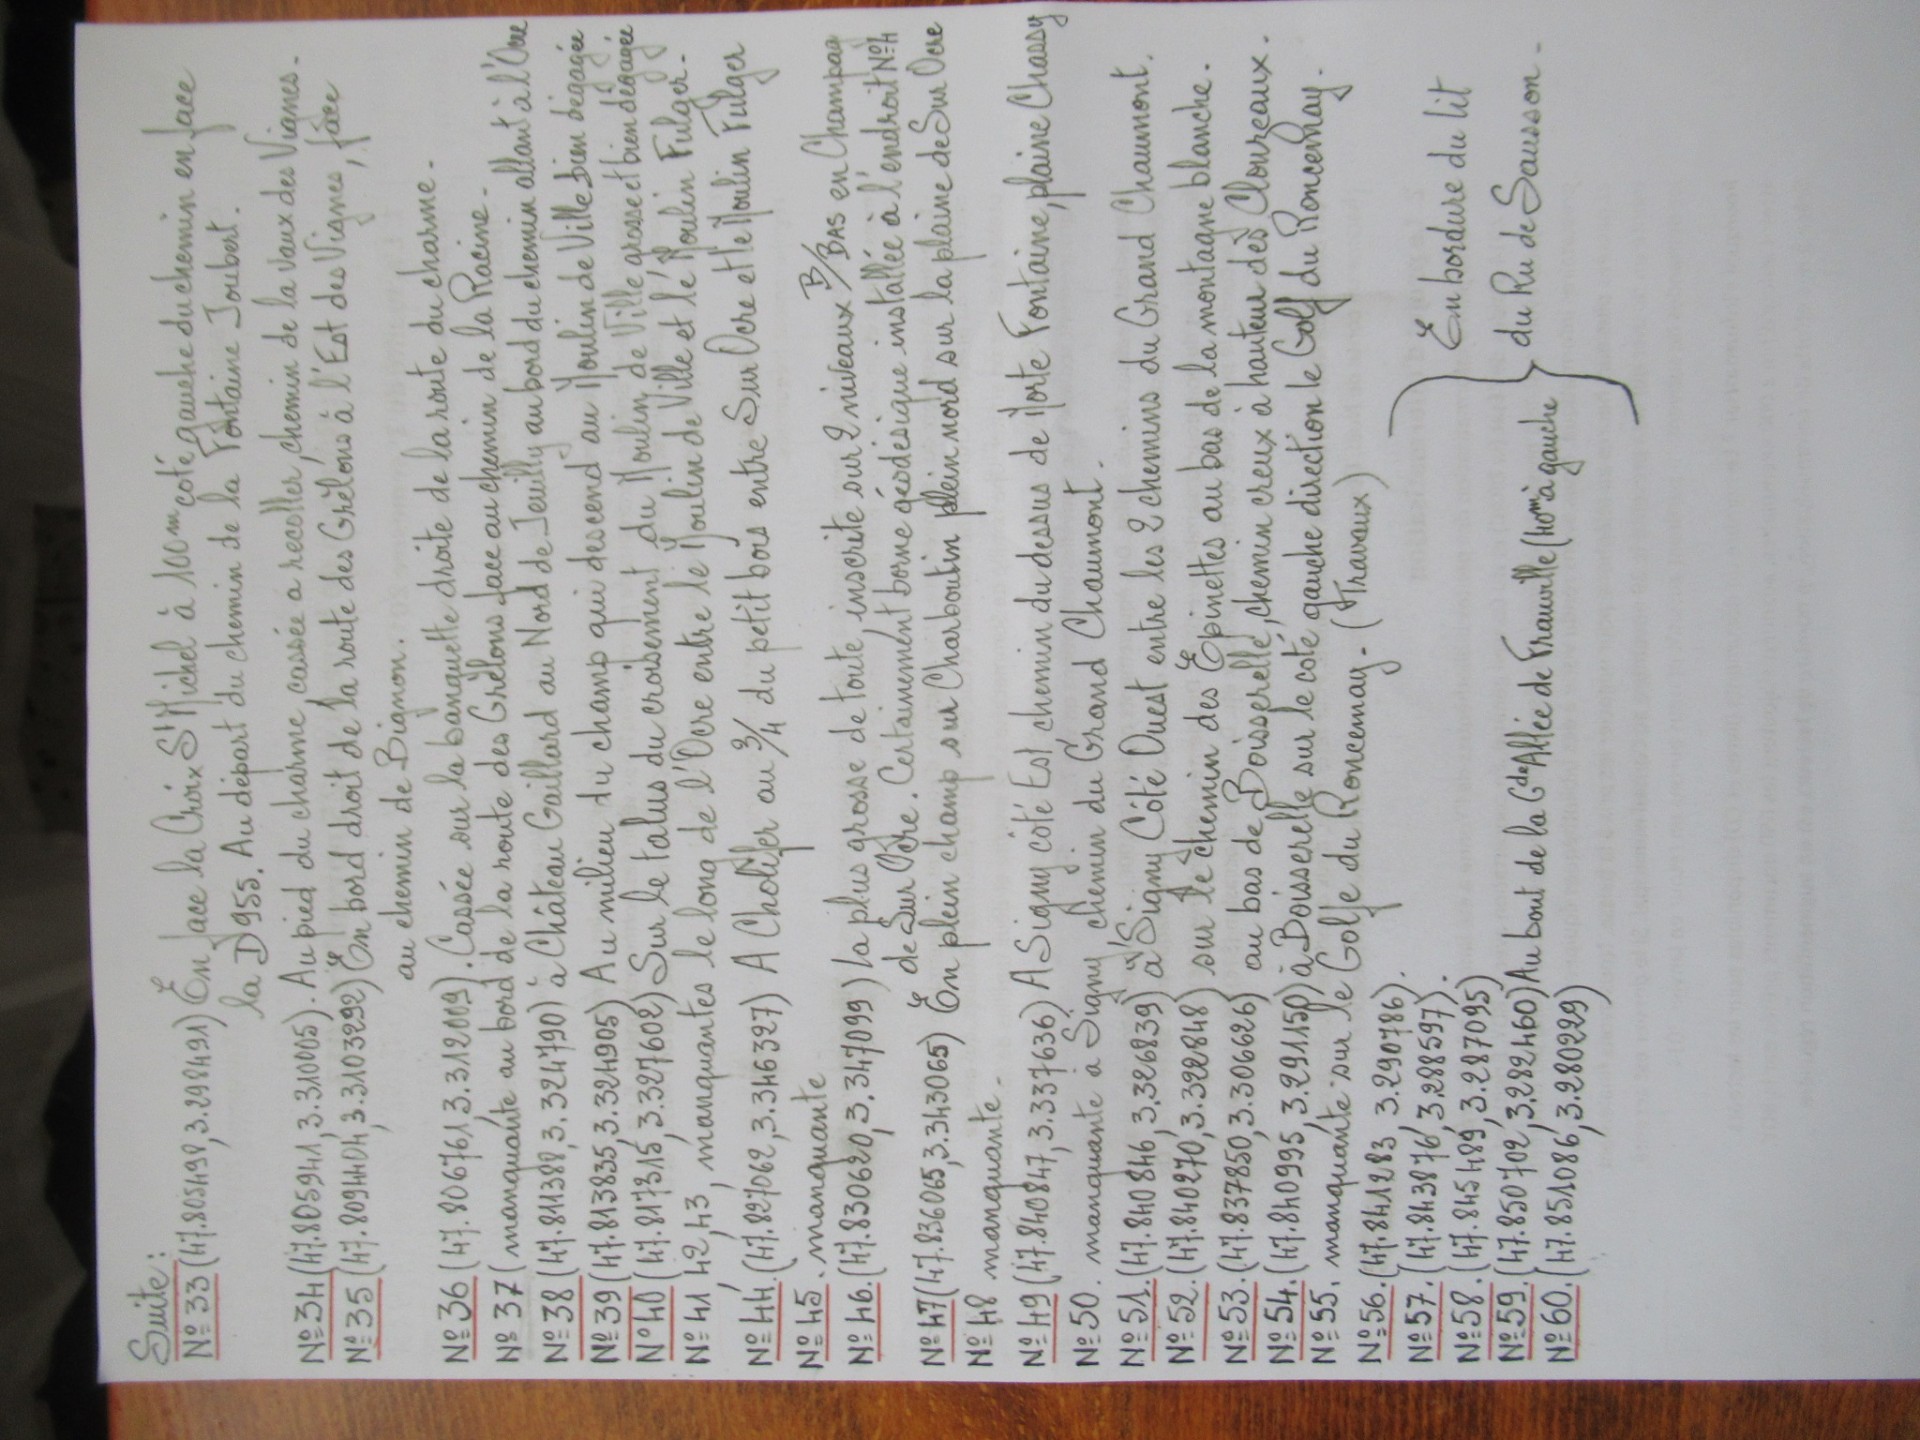 Suite :
N°33 (47.805498,3.298491) En face la Croix St Michel à 100m coté gauche du chemin en face
la D955. Au départ du chemin de la Fontaine Joubert.
N°34 (47.805941,3.310005). Au pied du charme, cassée a recoller, chemin de la vaux des Vignes.
N°35 (47.8094404,3.3103292) En bord droit de la route des Grêlons à l'Est des Vignes, face
au chemin de Bignon.
N°36 (47.806761,3.312009). Cassée sur la banquette droite de la route du charme.
N°37 (manquante au bord de la route des Grêlons face au chemin de la Racine.
N°38 (47.811388,3.324790) à Château Gaillard au Nord de Jeuilly au bord du chemin allant à l'Ocre
N°39 (47.813835,3.324905) Au milieu du champ qui descend au Moulin de Ville bien dégagée
N°40 (47.817315,3.327602) Sur le talus du croisement du Moulin de Ville grosse et bien dégagée
N°41, 42, 43, manquantes le long de l'Ocre entre le Moulin de Ville et le Moulin Fulger.
N°44. (47.827062,3.346327) A Cholifer au 3/4 du petit bois entre Sur Ocre et le Moulin Fulger
N°45. manquante
N°46. (47.830620,3.347099) La plus grosse de toute, inscrite sur 2 niveaux B/BAS en Champag
de Sur Ocre. Certainement borne géodésique installée à l'endroit N°4
N°47 (47.836065,3.343065) En plein champ sur Charboutin plein nord sur la plaine de Sur Ocre
N°48 manquante.
N°49 (47.840847,3.337636) A Signy côté Est chemin du dessus de Morte Fontaine, plaine Chassy
N°50. manquante à Signy chemin du Grand Chaumont.
N°51. (47.840846,3.326839) à Signy Côté Ouest entre les 2 chemins du Grand Chaumont.
N°52. (47.840270,3.322848) sur le chemin des Epinettes au bas de la montagne blanche.
N°53. (47.837850,3.306626) au bas de Boisserelle, chemin creux à hauteur des Cloureaux.
N°54. (47.840995,3.291150) à Boisserelle sur le coté gauche direction le Golf du Roncemay.
N°55. manquante sur le Golfe du Roncemay. (Travaux)
N°56. (47.841283 3.290786).
N°57. (47.843876,3.288597).
N°58. (47.845489,3.287095)
En bordure du lit
du Ru de Sausson.
N°59. (47.850702,3.282460) Au bout de la Gde Allée de Frauville (140m à gauche
N°60. (47.851086,3.280229)